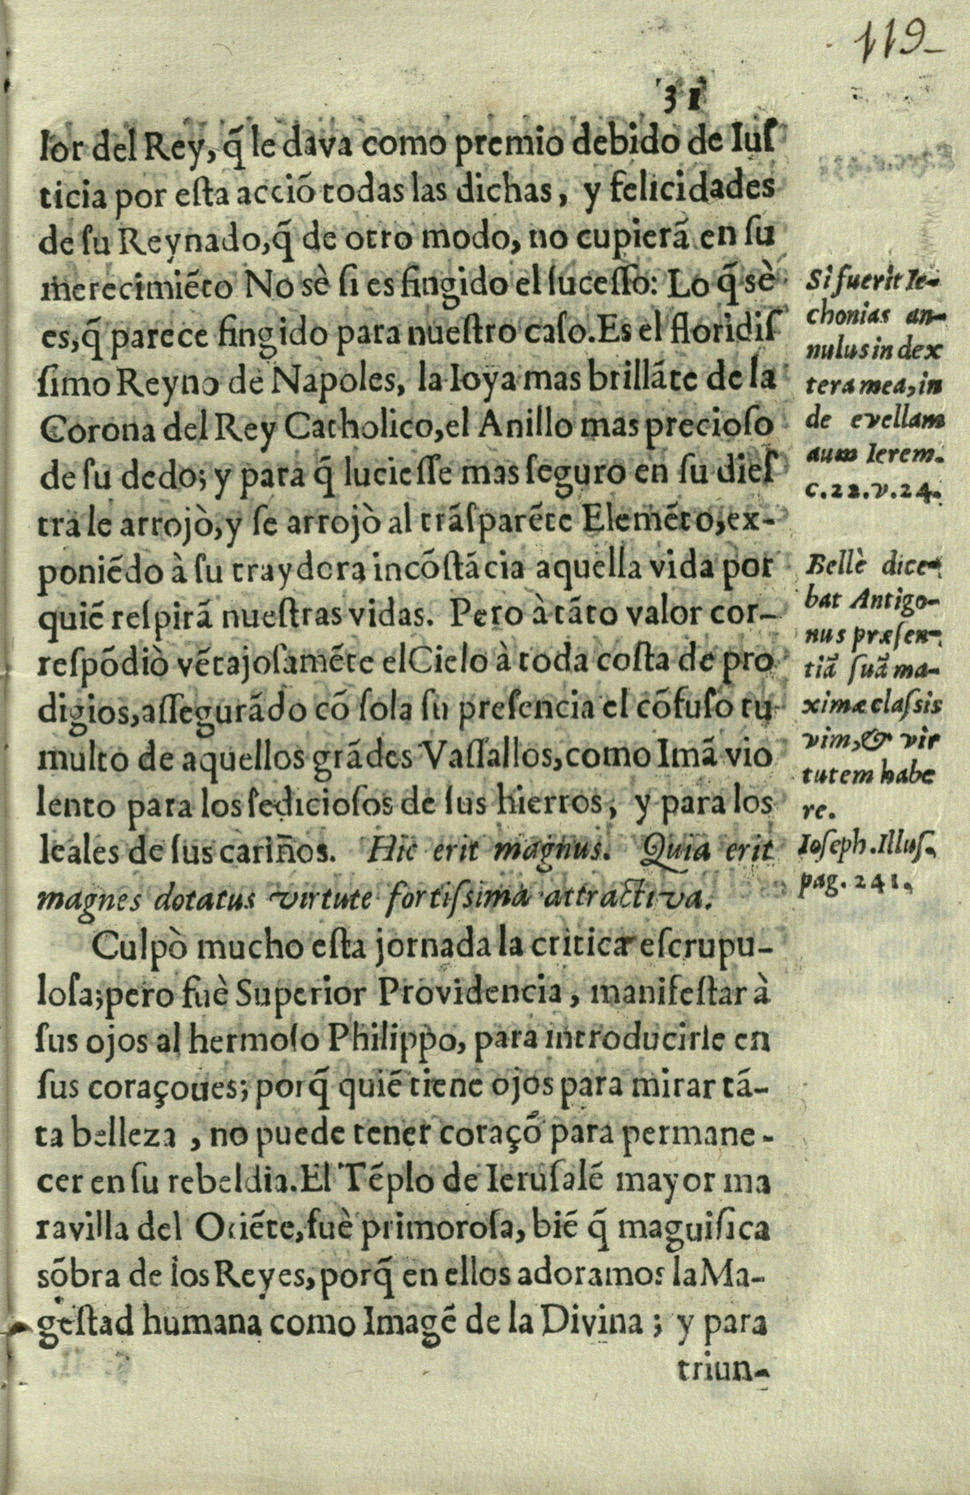 119
31
lor del Rey, q̃ le dava como premio debido de Iuſ
ticia por eſta acciõ todas las dichas, y felicidades
de ſu Reynado,q̃ de otro modo, no cupierã en ſu
merecimiẽto No sè ſi es fingido el ſuceſſo: Lo q̃ sè
es,q̃ parece fingido para nueſtro caſo.Es el floridiſ
ſimo Reyno de Napoles, la Ioya mas brillãte de la
Corona del Rey Catholico,el Anillo mas precioſo
de ſu dedo; y para q̃ lucieſſe mas ſeguro en ſu dieſ
tra le arrojò,y ſe arrojò al trãſparẽte Elemẽto,ex-
poniẽdo à ſu traydora incõſtãcia aquella vida por
quiẽ reſpirã nueſtras vidas. Pero à tãto valor cor-
reſpõdiò vẽtajoſamẽte el Cielo à toda coſta de pro
digios,aſſegurãdo cõ ſola ſu preſencia el cõfuſo tu
multo de aquellos grãdes Vaſſallos,como Imã vio
lento para los ſedicioſos de ſus hierros, y para los
leales de ſus cariños. Hic erit magnus. Quia erit
magnes dotatus virtute fortiſsima attractiva.
Culpò mucho eſta jornada la critica eſcrupu-
loſa;pero fuè Superior Providencia, manifeſtar à
ſus ojos al hermoſo Philippo, para introducirle en
ſus coraçoues; porq̃ quiẽ tiene ojos para mirar tã-
ta belleza , no puede tener coraçõ para permane-
cer en ſu rebeldia.El Tẽplo de Ieruſalẽ mayor ma
ravilla del Oriẽte,fuè primoroſa, biẽ q̃ maguifica
sõbra de los Reyes,porq̃ en ellos adoramos la Ma-
geſtad humana como Imagẽ de la Divina ; y para
triun-
Si fuerit Ie-
chonias an-
nulus in dex
tera mea,in
de evellam
aum Ierem.
c.22.v.24.
Bellè dice-
bat Antigo-
nus præſen-
tiã ſuã ma-
ximæ claſsis
vim,& vir
tutem habe
re.
Ioſeph.Illuſ.
pag.241.